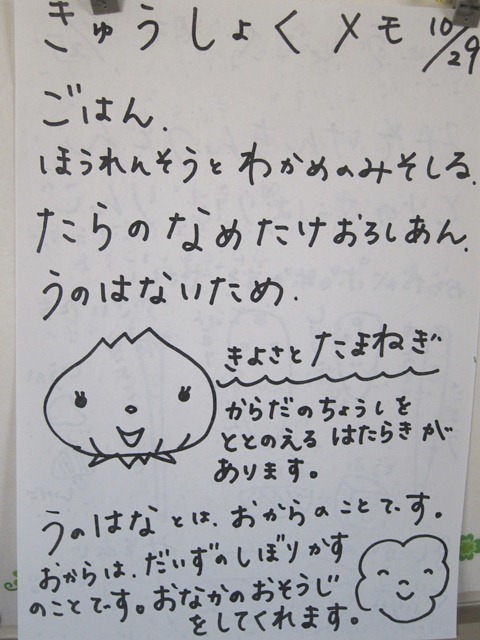 きゅうしょくメモ 10/29
ごはん.
ほうれんそうとわかめのみそしる.
たらのなめたけおろしあん.
うのはないため.
きよさと たまねぎ
からだのちょうしを
ととのえる はたらきが
あります。
うのはなとは、おからのことです。
おからは、だいずのしぼりかす
のことです。おなかのおそうじ
をしてくれます。